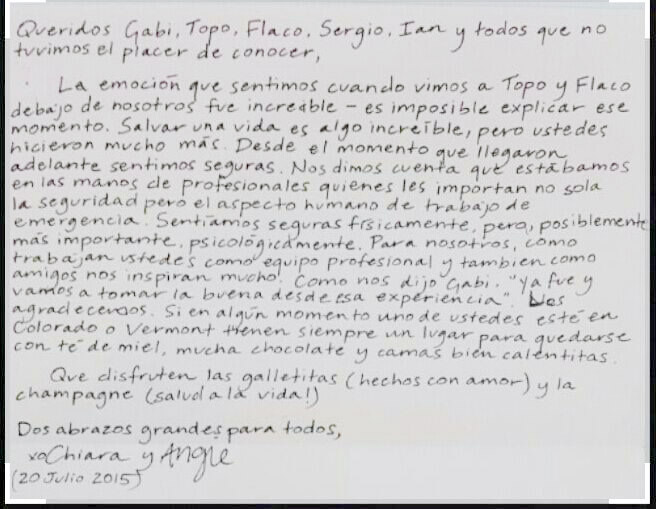 Queridos Gabi, Topo, Flaco, Sergio, Ian y todos que no
tuvimos el placer de conocer,
La emoción que sentimos cuando vimos a Topo y Flaco
debajo de nosotros fue increíble - es imposible explicar ese
momento. Salvar una vida es algo increíble, pero ustedes
hicieron mucho más. Desde el momento que llegaron
adelante sentimos seguras. Nos dimos cuenta que estábamos
en las manos de profesionales quienes les importan no sola
la seguridad pero el aspecto humano de trabajo de
emergencia. Sentíamos seguras físicamente, pero, posiblemente
más importante, psicológicamente. Para nosotros, como
trabajan ustedes como equipo profesional y tambien como
amigos nos inspiran mucho. Como nos dijo Gabi. "Ya fue y
vamos a tomar la buena desde esa experiencia". Les
agradecemos. Si en algún momento uno de ustedes esté en
Colorado o Vermont tienen siempre un lugar para quedarse
con té de miel, mucha chocolate y camas bien calentitas.
Que disfruten las galletitas (hechos con amor) y la
champagne (salud a la vida!)
Dos abrazos grandes para todos,
xo Chiara y Angie
(20 Julio 2015)